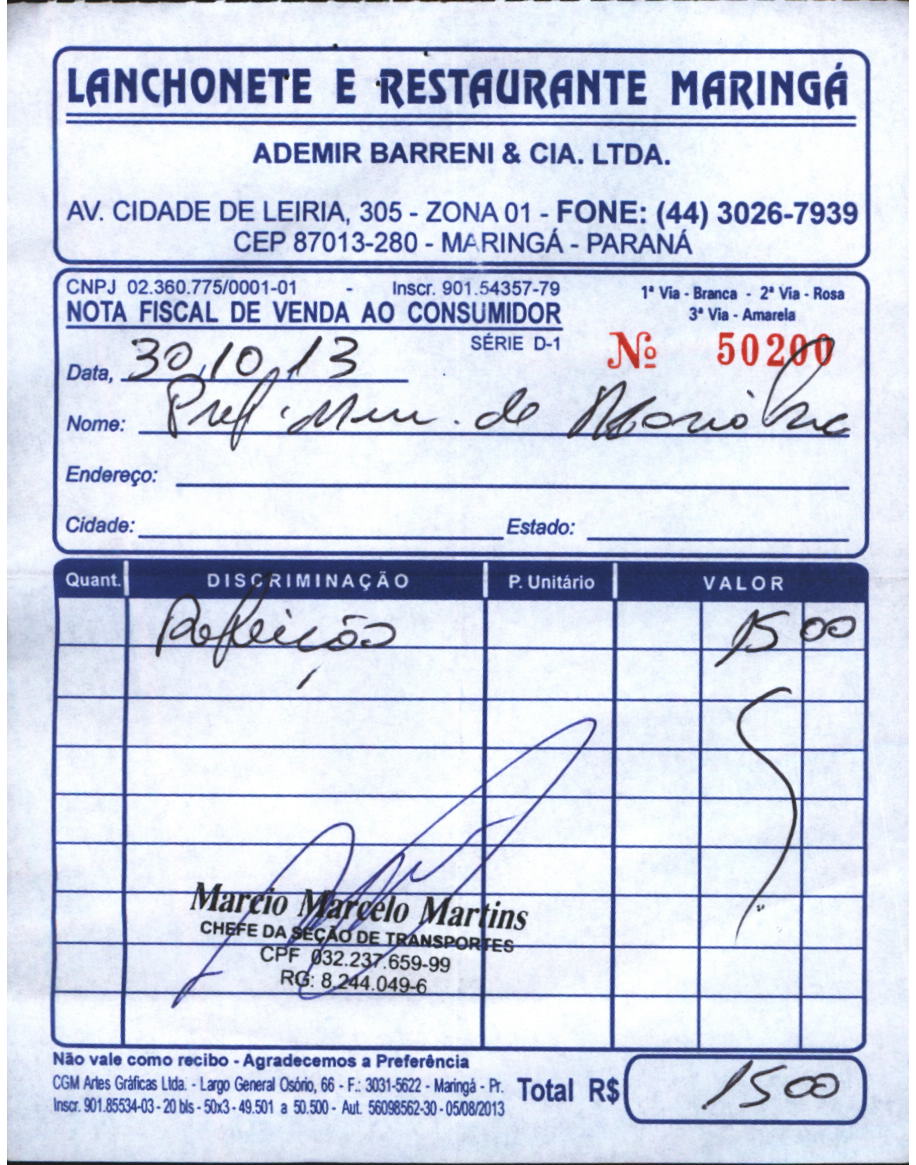 LANCHONETE E RESTAURANTE MARINGÁ
ADEMIR BARRENI & CIA. LTDA.
AV. CIDADE DE LEIRIA, 305 - ZONA 01 - FONE: (44) 3026-7939
CEP 87013-280 - MARINGÁ - PARANÁ
CNPJ 02.360.775/0001-01 - Inscr. 901.54357-79
1ª Via - Branca - 2ª Via - Rosa
NOTA FISCAL DE VENDA AO CONSUMIDOR
3ª Via - Amarela
SÉRIE D-1
Nº 50200
Data, 30,10,13
Nome: Pref. Mun. de
Endereço:
Cidade: Estado:
Quant. DISCRIMINAÇÃO P. Unitário VALOR
Refeição 15 00
Marcio Marcelo Martins
CHEFE DA SEÇÃO DE TRANSPORTES
CPF 032.237.659-99
RG: 8.244.049-6
Não vale como recibo - Agradecemos a Preferência
CGM Artes Gráficas Ltda. - Largo General Osório, 66 - F.: 3031-5622 - Maringá - Pr.
Inscr. 901.85534-03 - 20 bls - 50x3 - 49.501 a 50.500 - Aut. 56098562-30 - 05/08/2013
Total R$ 15 00